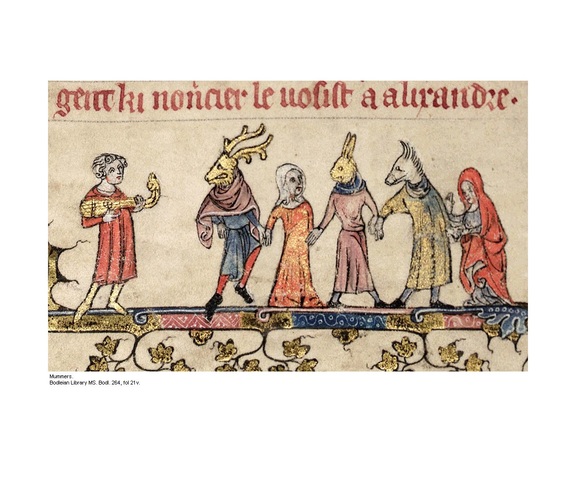 gent ki noncier le uosist a alixandre.
Mummers.
Bodleian Library MS. Bodl. 264, fol 21v.